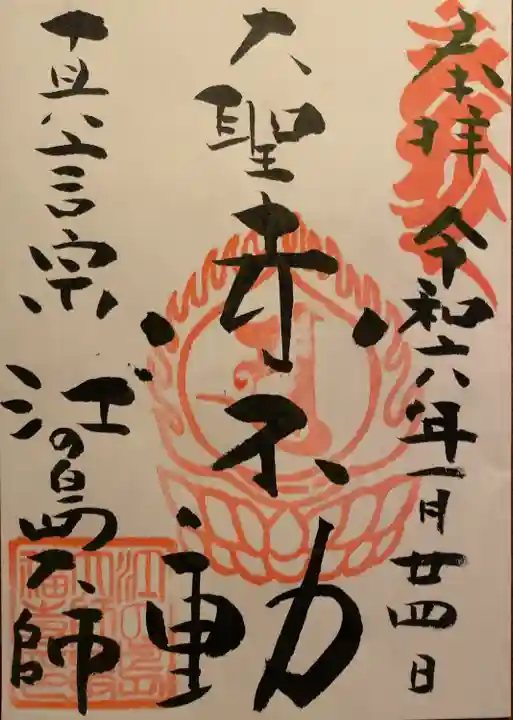 奉拝 令和六年一月廿四日
大聖赤不動
真言宗 江の島大師